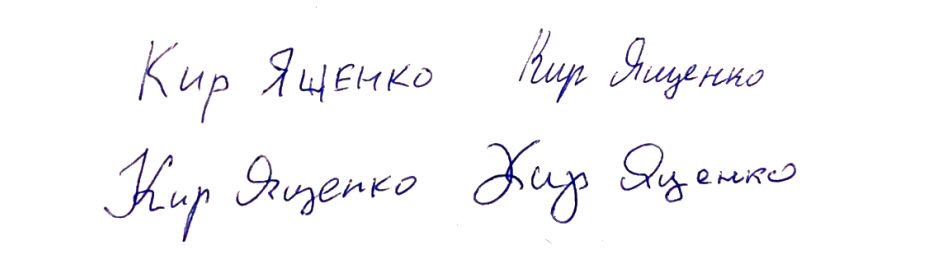 Кир Ященко Кир Ященко
Кир Ященко Кир Яценко